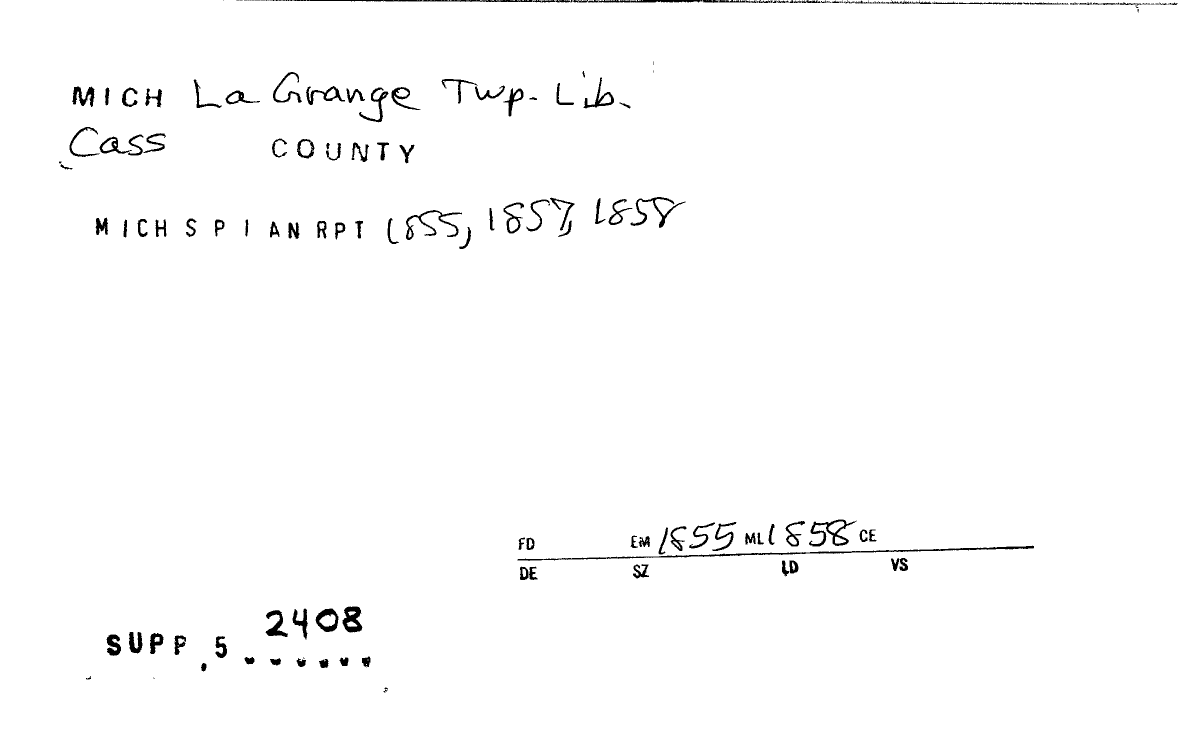 MICH La Grange Twp. Lib.
Cass COUNTY
MICH S P I AN RPT 1855, 1857, 1858
FD EM 1855 ML 1858 CE
DE SZ LD VS
2408
SUPP.5 ......